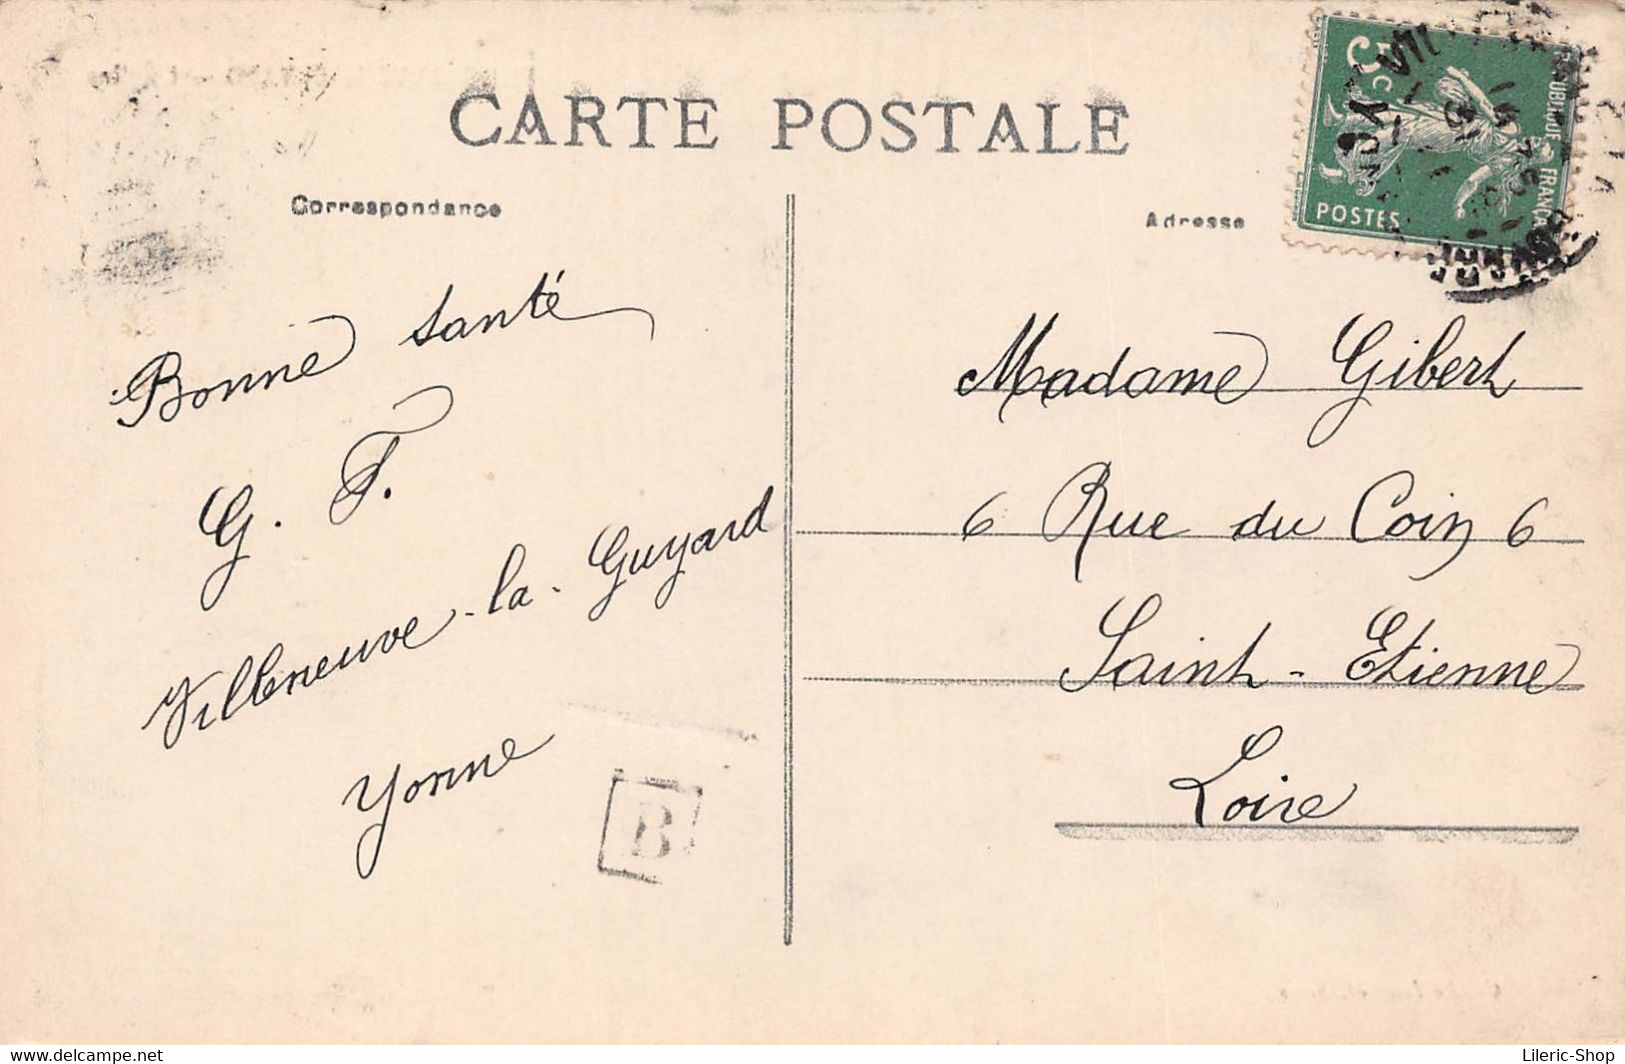 CARTE POSTALE
Correspondance
Adresse
5c
POSTES
Bonne santé
G. F.
Villeneuve-la-Guyard
Yonne
B
Madame Gibert
6 Rue du Coin 6
Saint-Etienne
Loire
https://www.delcampe.net
Lileric-Shop